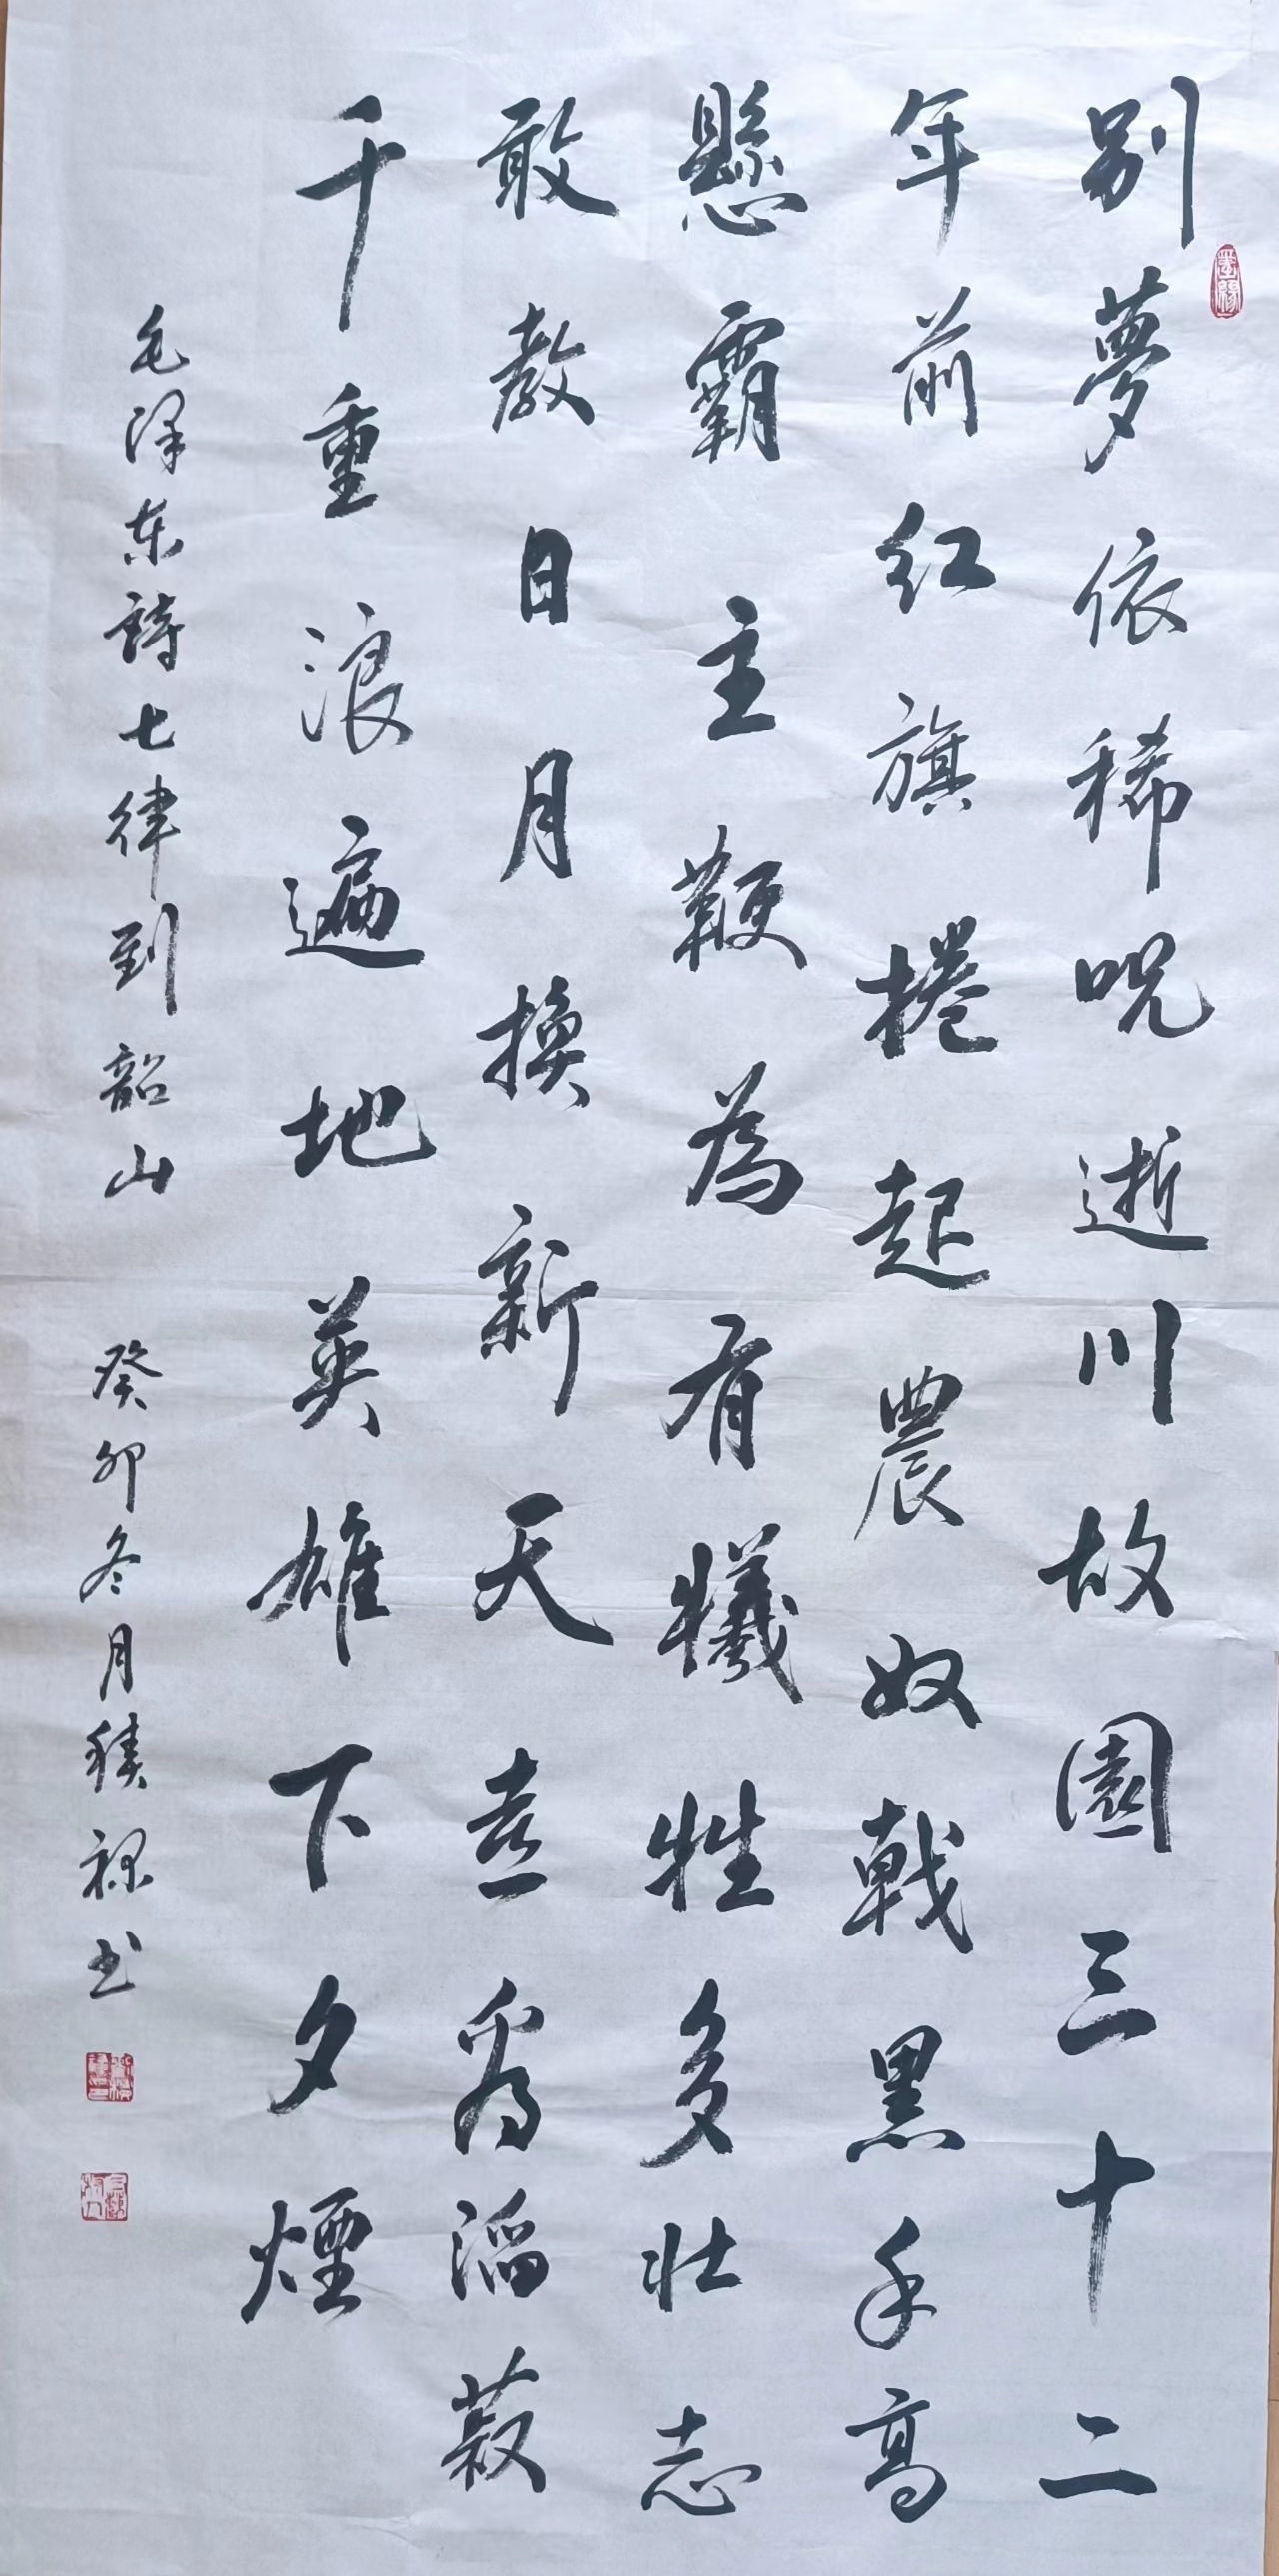 别夢依稀呪逝川故園三十二
年前红旗捲起農奴戟黑手高
懸霸主鞭為有犧牲多壮志
敢教日月換新天喜看滔菽
千重浪遍地英雄下夕煙
毛泽东詩七律到韶山
癸卯冬月積禄书
墨緣